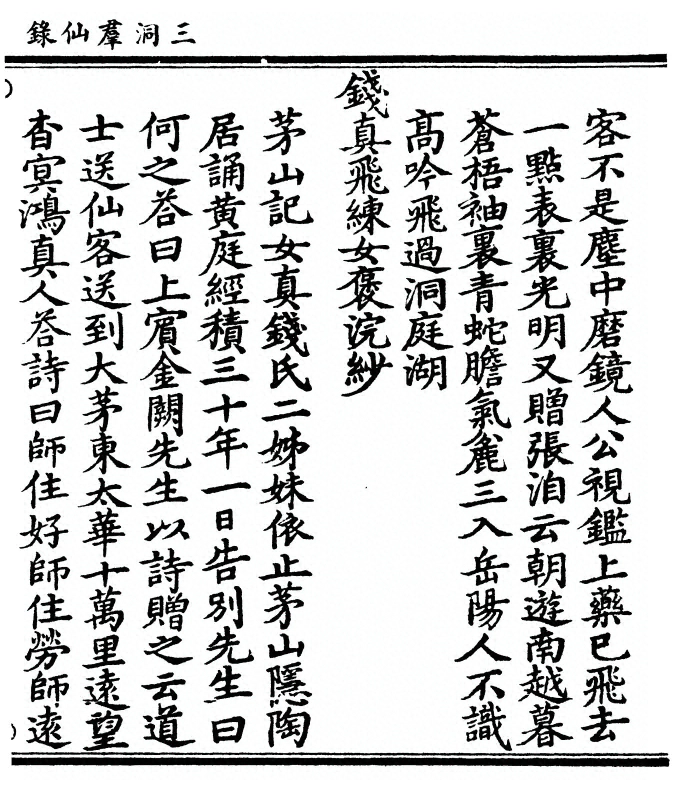 三洞羣仙錄
客不是塵中磨鏡人公視鑑上藥已飛去
一點表裏光明又贈張洎云朝遊南越暮
蒼梧袖裏青蛇膽氣麄三入岳陽人不識
高吟飛過洞庭湖
錢真飛練女褒浣紗
茅山記女真錢氏二姊妹依止茅山隱陶
居誦黃庭經積三十年一日告別先生曰
何之荅曰上賓金闕先生以詩贈之云道
士送仙客送到大茅東太華十萬里遠望
杳冥鴻真人荅詩曰師住好師住勞師遠